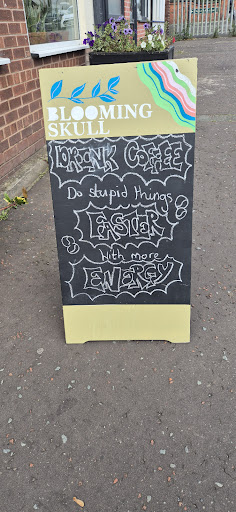 BLOOMING
SKULL
DRINK COFFEE
Do stupid things
FASTER
With more
ENERGY